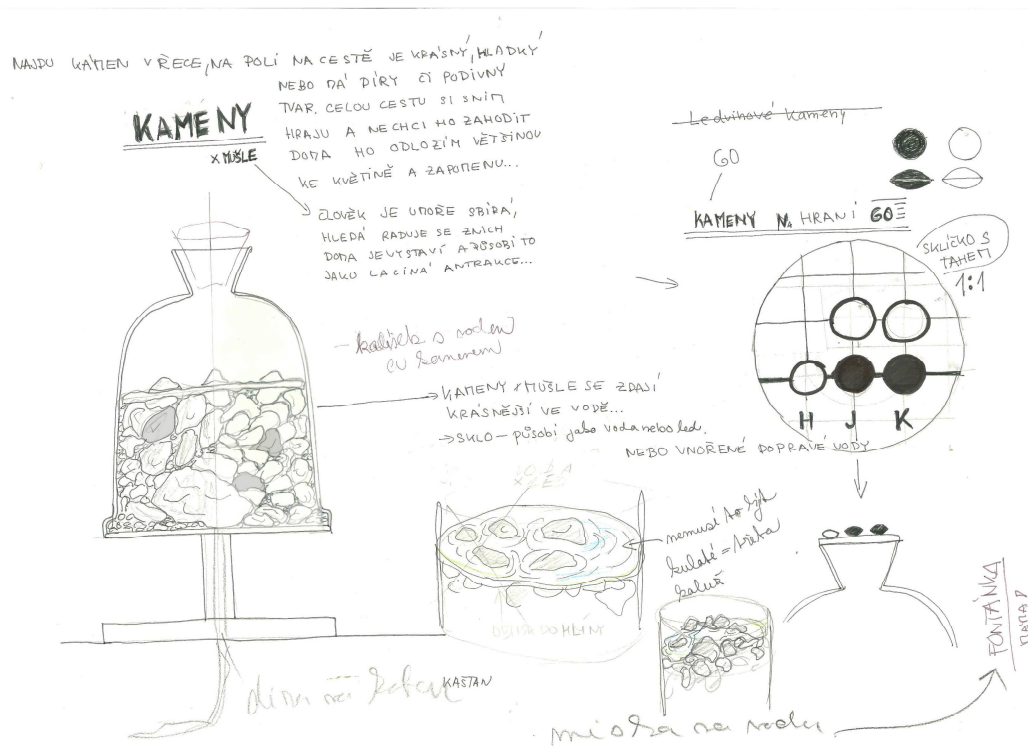 NAJDU KÁMEN V ŘECE, NA POLI NA CESTĚ JE KRÁSNÝ, HLADKÝ
NEBO MÁ DÍRY ČI PODIVNÝ
TVAR. CELOU CESTU SI SNÍM
HRAJU A NECHCI HO ZAHODIT
DOMA HO ODLOŽÍM VĚTŠINOU
KE KVĚTINĚ A ZAPOMENU...
KAMENY
x MUŠLE
ČLOVĚK JE UMOŘE SBÍRÁ,
HLEDÁ RADUJE SE ZNICH
DOMA JE VYSTAVÍ A PŮSOBÍ TO
JAKO LACINÁ ANTRAKCE...
Ledvinové kameny
GO
KAMENY NA HRANÍ GO
SKLÍČKO S
TAHEM
1:1
H J K
KAMENY x MUŠLE SE ZDAJÍ
KRÁSNĚJŠÍ VE VODĚ...
→ SKLO – působí jako voda nebo led.
NEBO VNOŘENÉ DOPRAVÉ VODY
nemusí to být
kulaté = třeba
kaluž
DO HLÍNY
KAŠTAN
díra na
miska na vodu
FONTÁNKA